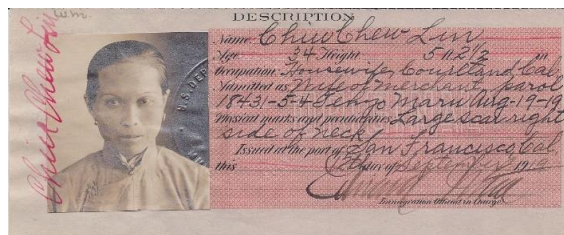 DESCRIPTION
Name Chiu Chew Lin
Age 34 Height 5 ft 2 1/2 in
Occupation Housewife, Courtland Cal
Admitted as Wife of merchant parol
18431-5-4 Tenyo Maru Aug-19-19
Physical marks and peculiarities Large scar right
side of neck
Issued at the port of San Francisco, Cal
this day of September 1919
Immigration Official in Charge.
Chiu Chew Lin
U.S. DEP